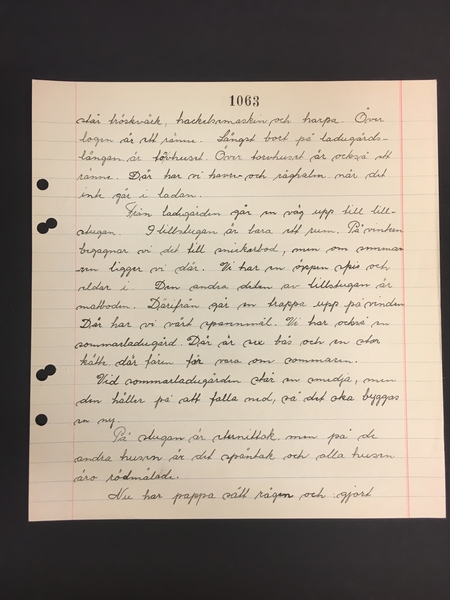 1063
står tröskverk, hackelsemaskin och harpa. Över
logen är ett ränne. Längst bort på ladugårds-
längan är torvhuset. Över torvhuset är också ett
ränne. Där har vi havre- och råghalm när det
inte går i ladan.
Från ladugården går en väg upp till lill-
stugan. I lillstugan är bara ett rum. På vintern
begagnar vi det till snickerbod, men om somma-
ren ligger vi där. Vi har en öppen spis och
eldar i. Den andra delen av lillstugan är
matboden. Därifrån går en trappa upp på vinden
Där har vi vårt spannmål. Vi har också en
sommarladugård Där är sex bås och en stor
kätte, där fåren får vara om sommaren.
Vid sommarladugården står en smedja, men
den håller på att falla ned, så det ska byggas
en ny.
På stugan är eternittak men på de
andra husen är det spåntak och alla husen
äro rödmålade.
Nu har pappa sått rågen och gjort